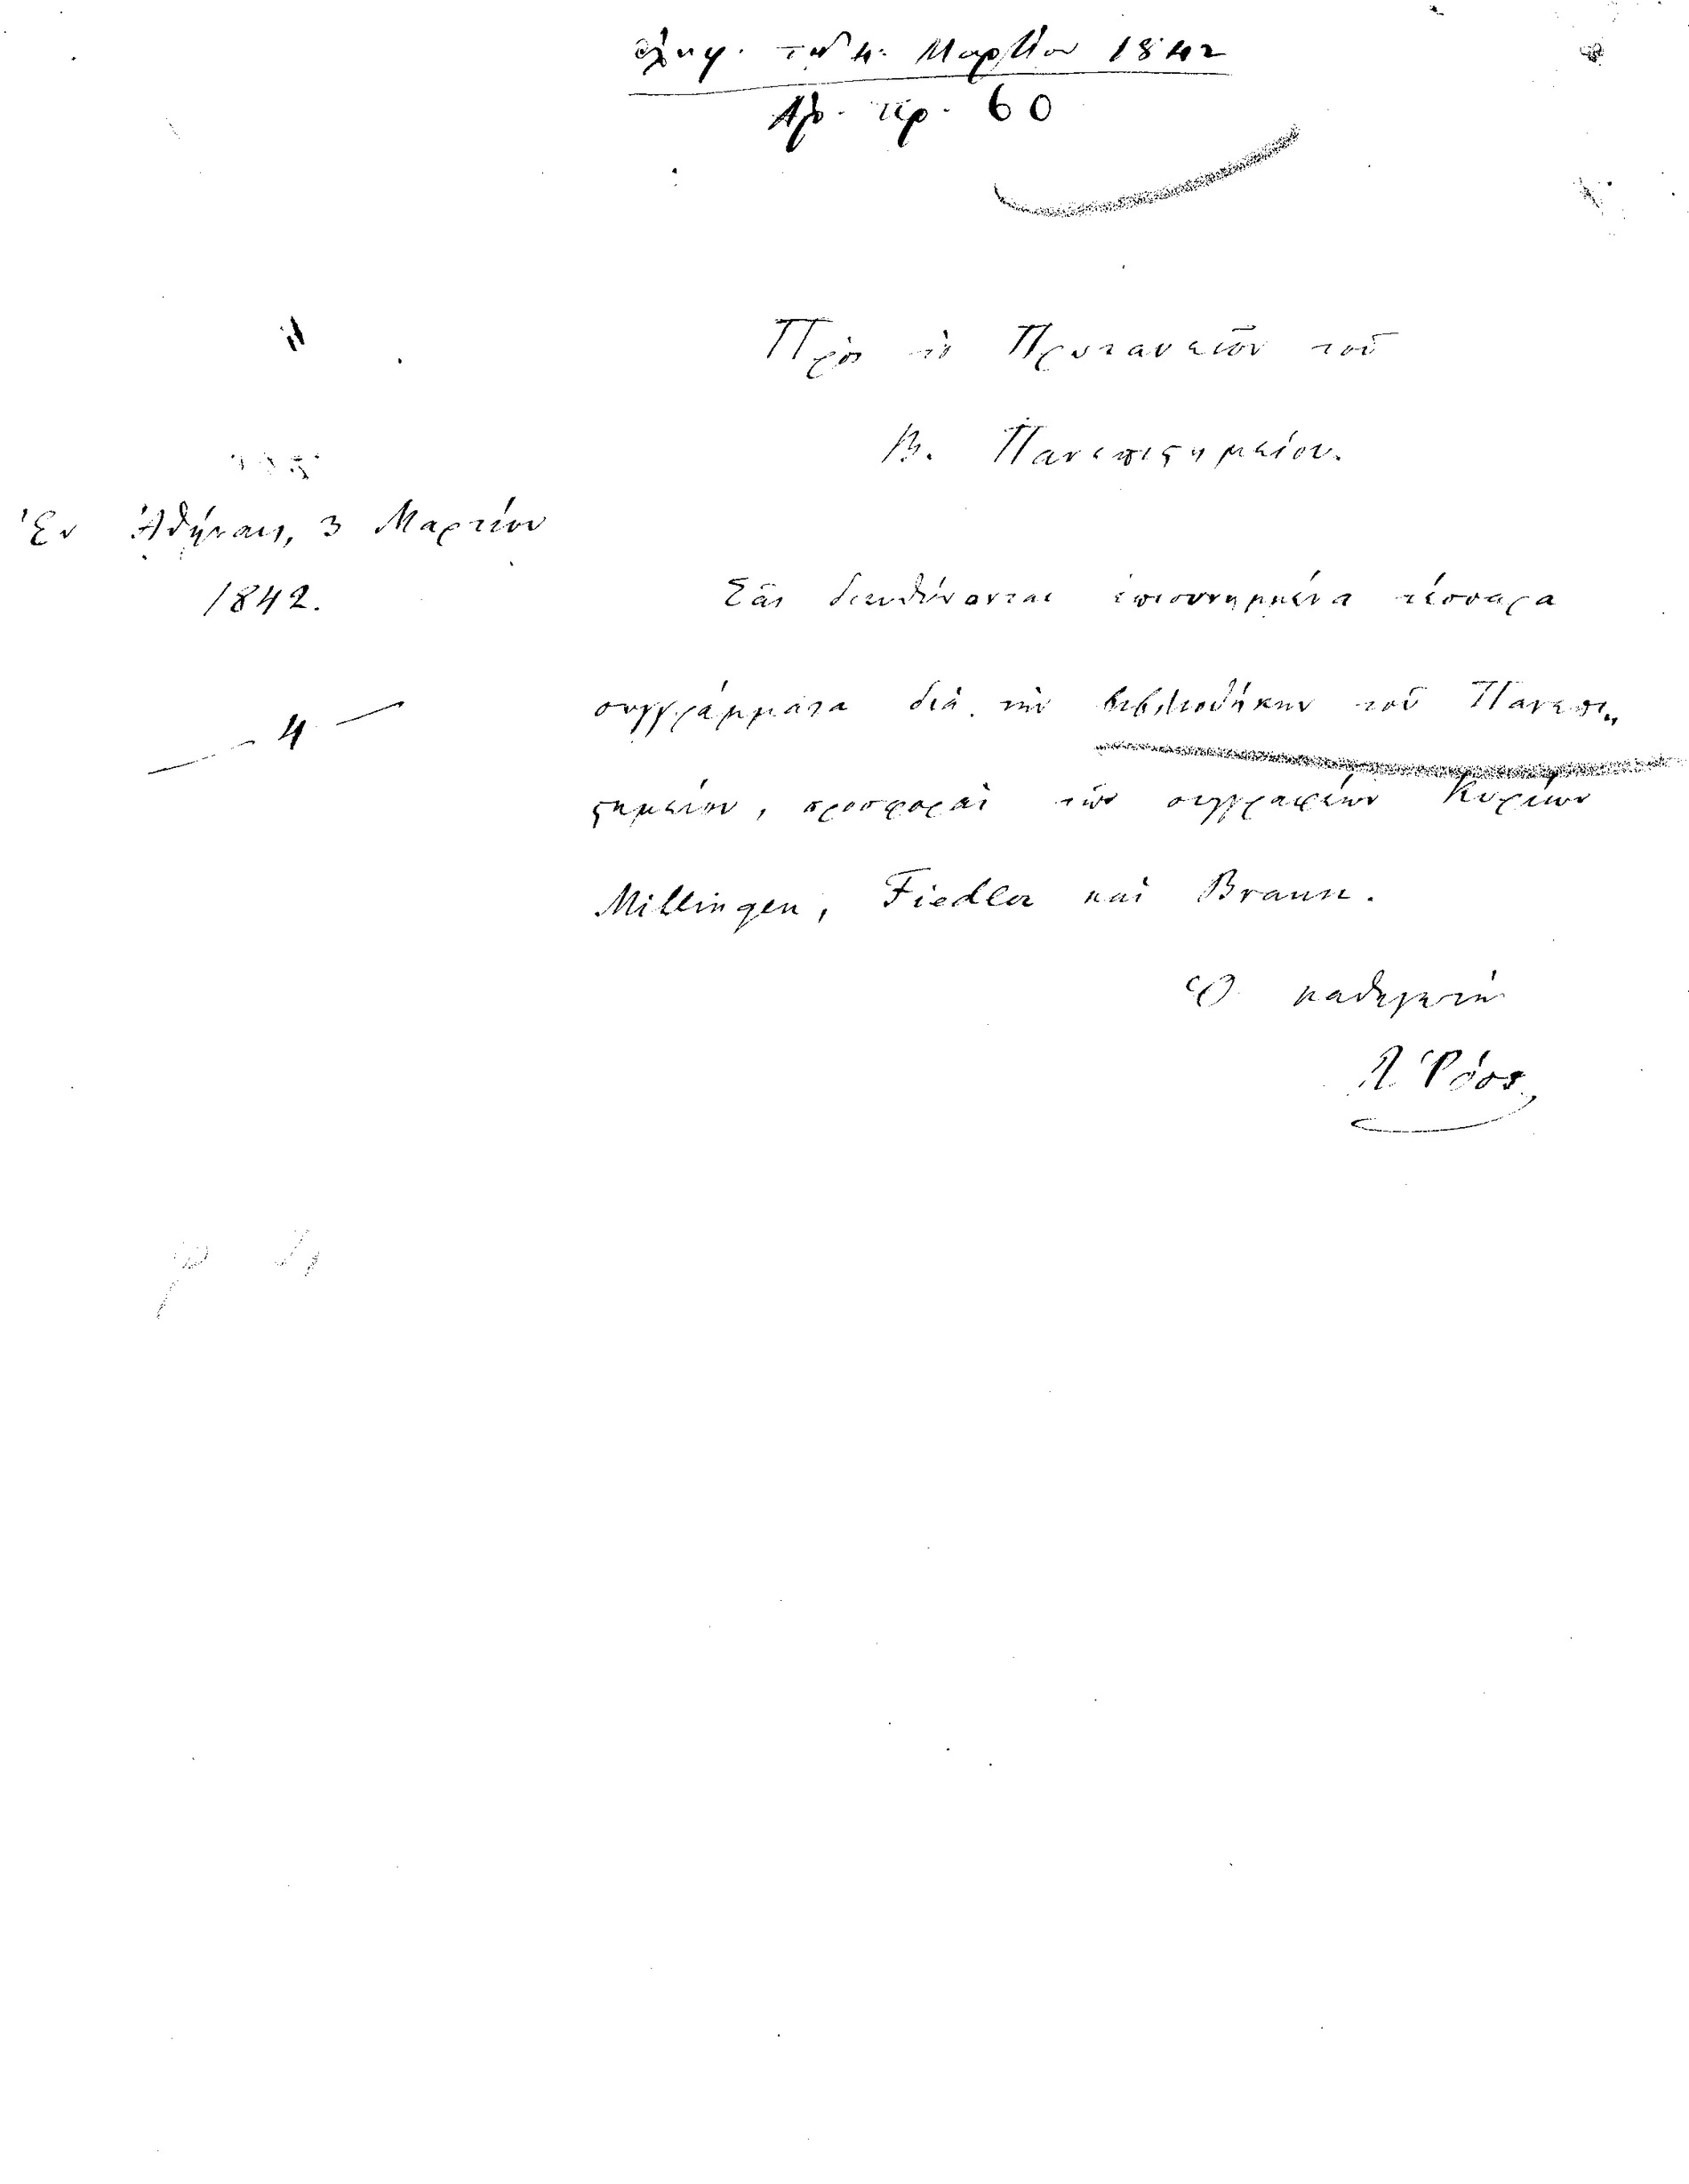 ἐλήφ. τῇ 4. Μαρτίου 1842
Ἀρ. πρ. 60
Πρὸς τὸ Πρυτανεῖον τοῦ
Β. Πανεπιςημείου.
Ἐν Ἀθήναις, 3 Μαρτίου
1842.
Σᾶς διευθύνονται ἐπισυνημμένα τέσσαρα
συγγράμματα διὰ τὴν βιβλιοθήκην τοῦ Πανεπι„
ςημείου, προσφοραὶ τῶν συγγραφέων Κυρίων
Millingen, Fiedler καὶ Braun.
— 4 —
Ὁ καθηγητὴς
Λ. Ῥόσς